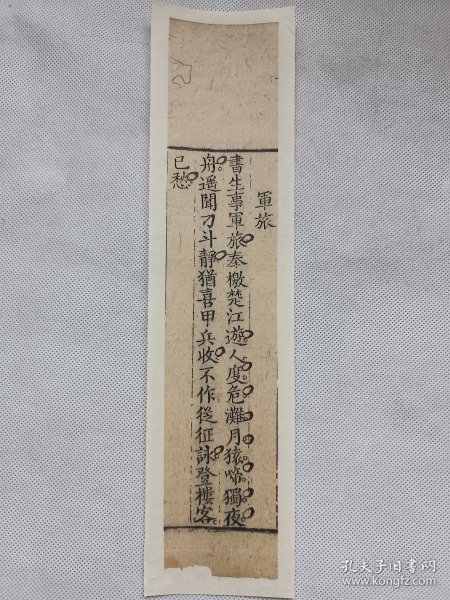 軍旅
書生事軍旅奉檄楚江遊人度危灘月猿啼獨夜
舟遥聞刁斗靜猶喜甲兵收不作從征詠登樓客
已愁
孔夫子旧书网
www.kongfz.com